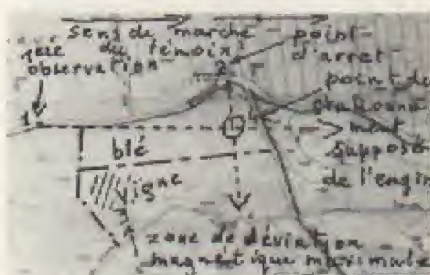 sens de marche
du témoin
1ère
observation
point
d'arret
2
point de
stationne
ment
supposé
de l'engin
1
blé
vigne
zone de déviation
magnétique maximale